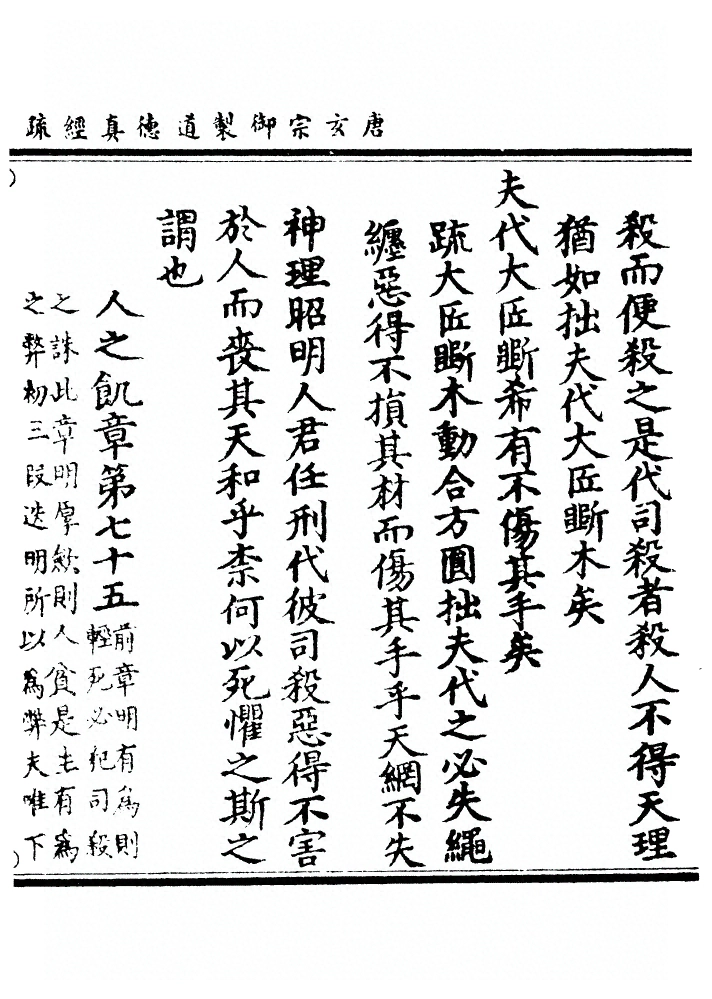 唐玄宗御製道德真經疏
殺而便殺之是代司殺者殺人不得天理
猶如拙夫代大匠斲木矣
夫代大匠斲希有不傷其手矣
疏大匠斲木動合方圓拙夫代之必失繩
纆惡得不損其材而傷其手乎天網不失
神理昭明人君任刑代彼司殺惡得不害
於人而喪其天和乎柰何以死懼之斯之
謂也
人之飢章第七十五
前章明有為則
輕死必犯司殺
之誅此章明厚斂則人貧是主有為
之弊初三段迭明所以為弊夫唯下